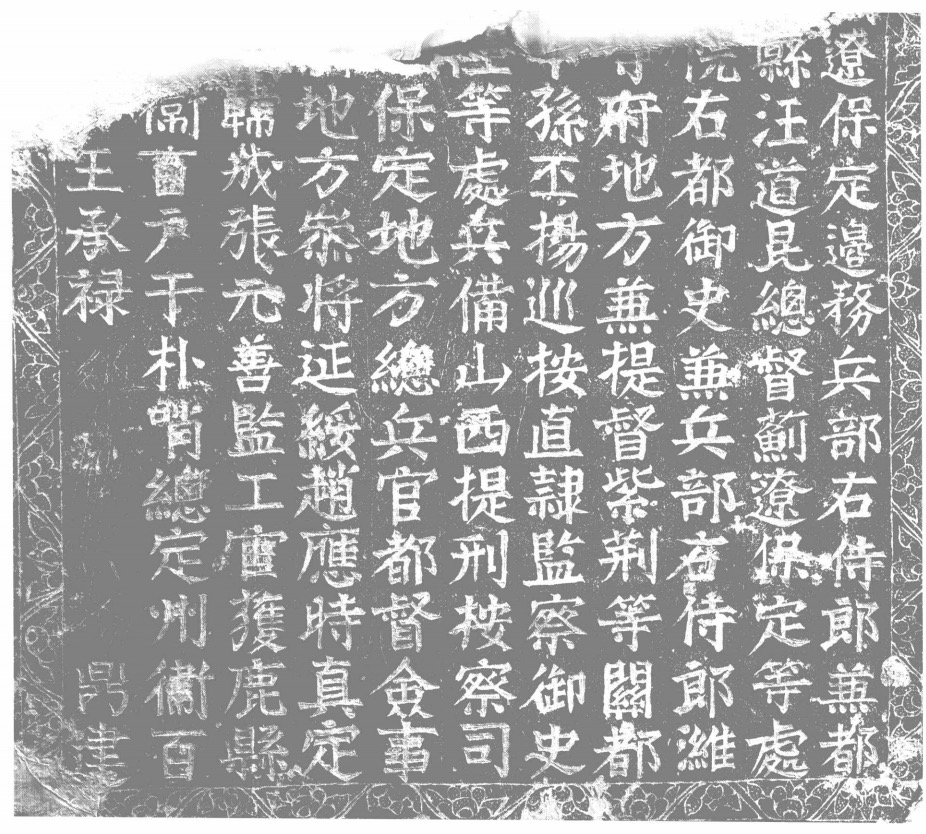 遼保定邊務兵部右侍郎兼都
縣汪道昆總督薊遼保定等處
院右都御史兼兵部右侍郎濰
府地方兼提督紫荊等關都
孫丕揚巡按直隷監察御史
等處兵備山西提刑按察司
保定地方總兵官都督僉事
地方叅將延綏趙應時真定
韓城張元善監工官獲鹿縣
户于朴哨總定州衛百
王承禄 鼎建